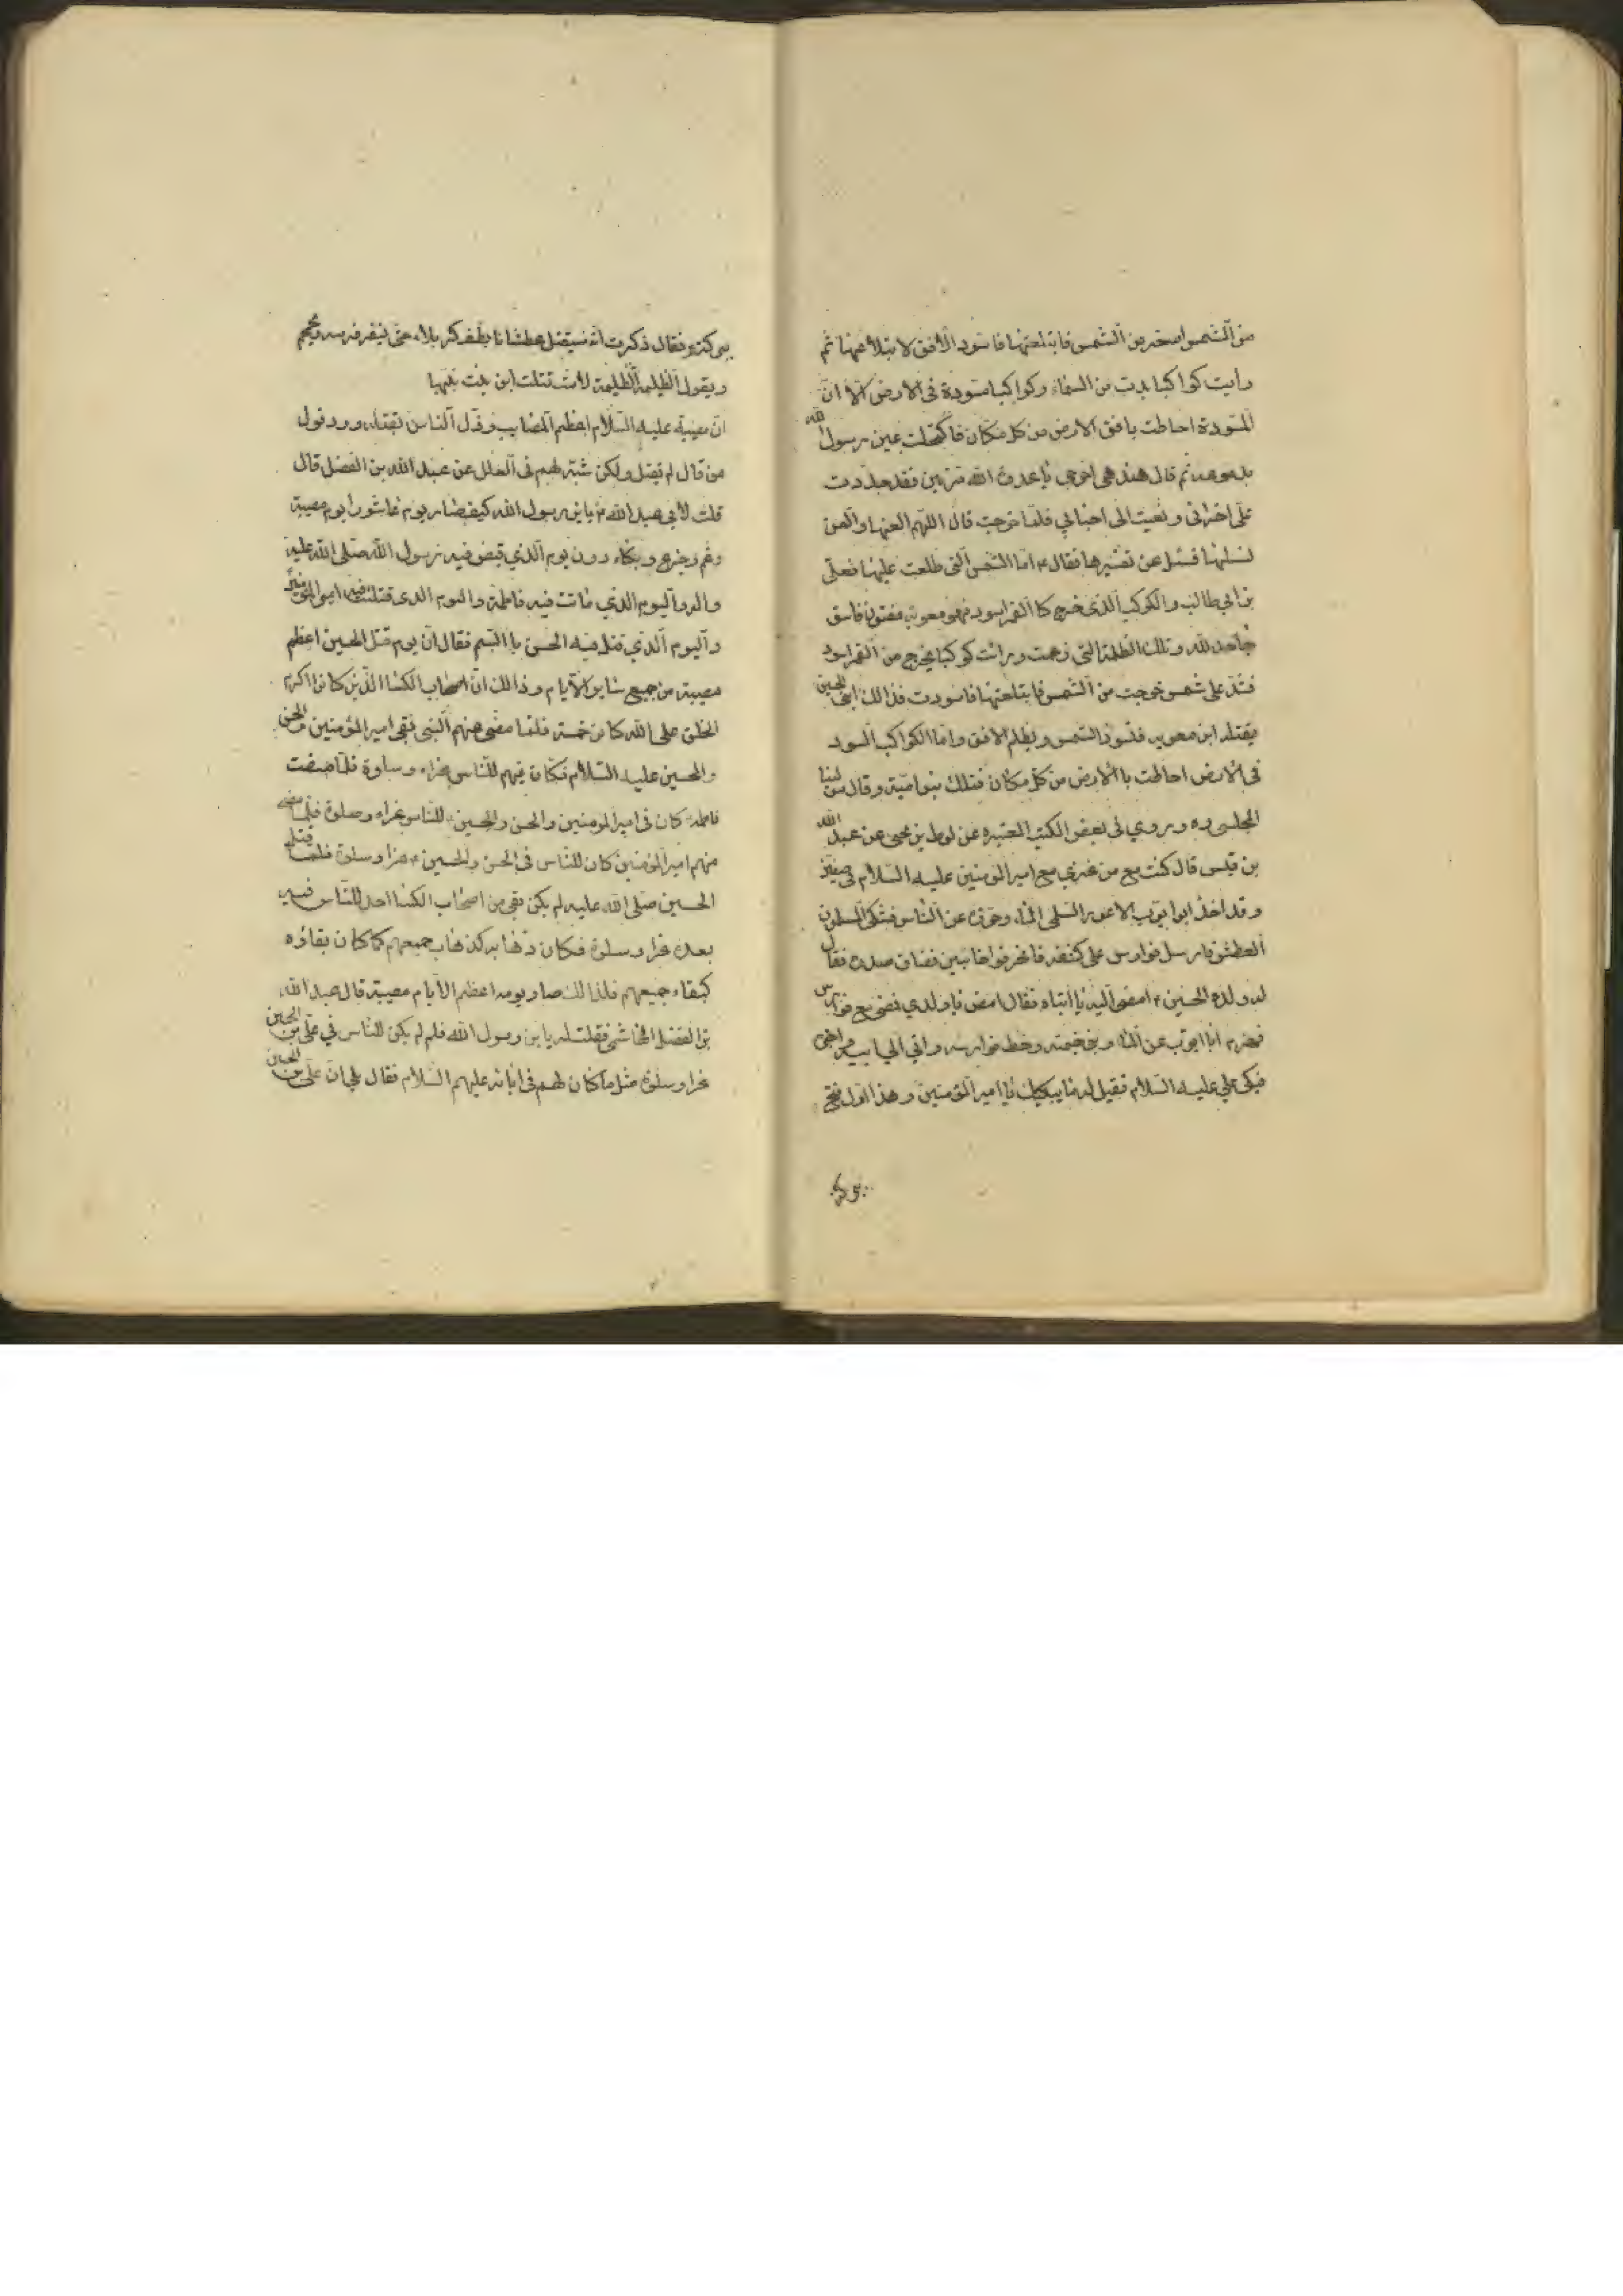 من الشمس اصغر من الشمس فابتلعتها فاسود الافق لابتلاعها ثم
رايت كواكبا بدت من السماء وكواكبا مسودة في الارض الا ان
المسودة احاطت بافق الارض من كل مكان فاكتحلت عين رسول الله
بدموعه ثم قال هند هي اخرجي يا عدوة الله مرتين فقد جددت
على احزاني ونعيت الى احبابي فلما خرجت قال اللهم العنها والعن
نسلها فسئل عن تفسيرها فقال ع اما الشمس التي طلعت عليها فعلي
بن ابي طالب والكوكب الذي خرج كالقمر اسود فهو معويه مفتون فاسق
جاحد لله وتلك الظلمة التي زعمت ورات كوكبا يخرج من القمر اسود
فشد على شمس خرجت من الشمس فابتلعتها فاسودت فذالك ابني الحسين
يقتله ابن معويه فتسود الشمس ويظلم الافق واما الكواكب السود
في الارض احاطت باالارض من كل مكان فتلك بنو امية وقال
المجلسي ره وروي في بعض الكتب المعتبره عن لوط بن يحيى عن عبد الله
بن قيس قال كنت مع من غزي مع امير المومنين عليه السلام في صفين
وقد اخذ ابو ايوب الاعور السلمي الماء وحرزه عن الناس فشكى المسلمون
العطش فارسل فوارس على كشفه فانحرفوا خائبين فضاق صدره فقال
له ولده الحسين ع امضي اليه يا ابتاه فقال امض يا ولدي فمضى مع فوارس
فهزم ابا ايوب عن الماء وبنى خيمته وحط فوارسه واتى الى ابيه واخبره
فبكى علي عليه السلام فقيل له ما يبكيك يا امير المؤمنين وهذا اول فتح
ببركة
ببركته فقال ذكرت انه سيقتل عطشانا بطف كربلاء حتى ينفر فرسه ويحمحم
ويقول الظليمة الظليمة لامة قتلت ابن بنت نبيها
ان مصيبة عليه السلام اعظم المصايب وذل الناس بقتله ورد قول
من قال لم يقتل ولكن شبه لهم في العلل عن عبد الله بن الفضل قال
قلت لابي عبد الله ع يا بن رسول الله كيف صار يوم عاشورا يوم مصيبة
وغم وجزع وبكاء دون يوم الذي قبض فيه رسول الله صلى الله عليه
واله واليوم الذي ماتت فيه فاطمة واليوم الذي قتل فيه امير المؤمنين
واليوم الذي قتل فيه الحسن باالسم فقال ان يوم قتل الحسين اعظم
مصيبة من جميع سائر الايام وذالك ان اصحاب الكسا الذين كانوا اكرم
الخلق على الله كانو خمسة فلما مضى عنهم النبي بقي امير المؤمنين والحسن
والحسين عليه السلام فكان فيهم للناس عزاء وسلوة فلما مضت
فاطمه كان في امير المومنين والحسن والحسين للناس عزاء وسلوة فلما مضى
منهم امير المؤمنين كان للناس في الحسن والحسين ع عزا وسلوة فلما قتل
الحسين صلى الله عليه لم يكن بقي من اصحاب الكسا احد للناس فيه
بعده عزا وسلوة فكان ذهابه كذهاب جميعهم كما كان بقاؤه
كبقاء جميعهم فلذالك صار يومه اعظم الايام مصيبة قال عبد الله
بن الفضل الهاشمي فقلت له يا بن رسول الله فلم لم يكن للناس في علي بن الحسين
عزا وسلوة مثل ما كان لهم في ابائه عليهم السلام فقال بلى ان علي بن الحسين